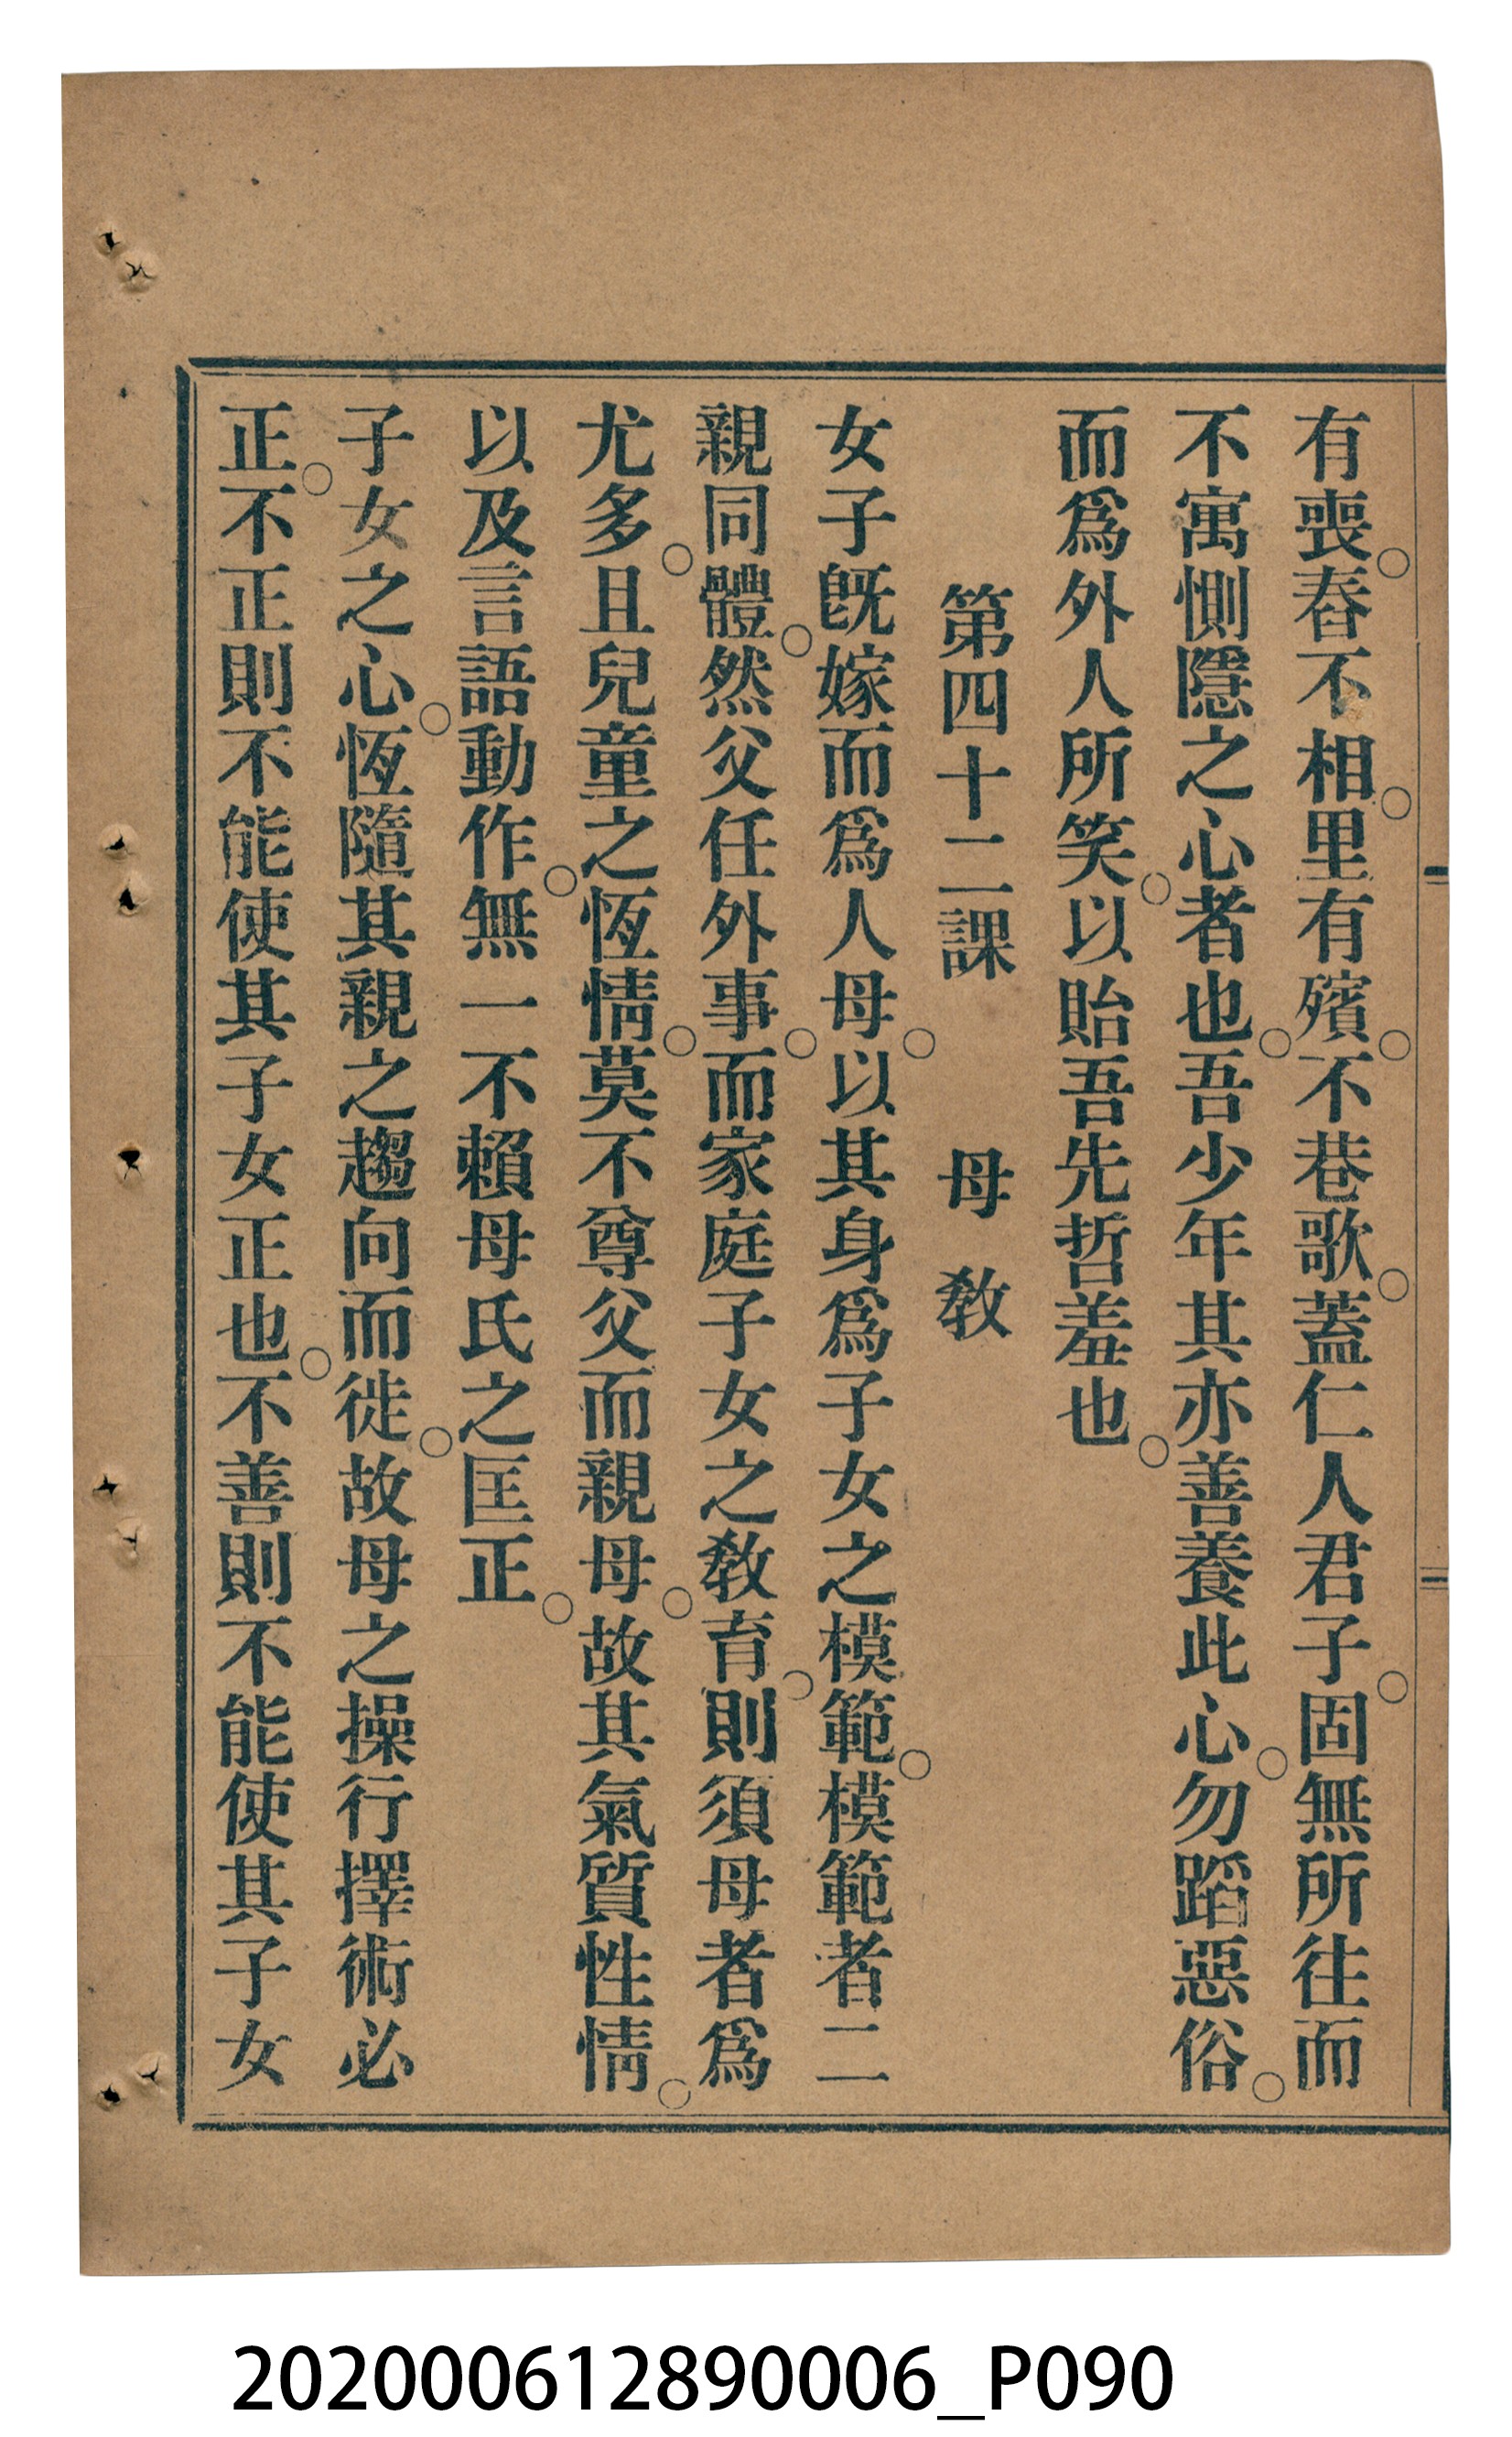 有喪○舂不相○里有殯○不巷歌○蓋仁人君子○固無所往而
不寓惻隱之心者也○吾少年其亦善養此心○勿蹈惡俗○
而爲外人所笑○以貽吾先哲羞也○
第四十二課 母敎
女子旣嫁而爲人母○以其身爲子女之模範○模範者二
親同體○然父任外事○而家庭子女之敎育○則須母者爲
尤多○且兒童之恆情○莫不尊父而親母○故其氣質性情○
以及言語動作○無一不賴母氏之匡正○
子女之心○恆隨其親之趨向而徙○故母之操行擇術必
正○不正則不能使其子女正也○不善則不能使其子女
202000612890006_P090